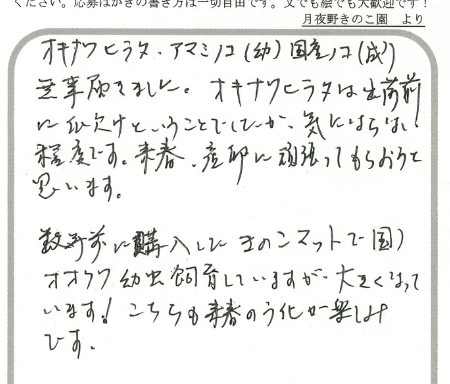 ください。応募はがきの書き方は一切自由です。文でも絵でも大歓迎です！
月夜野きのこ園　より
オキナワヒラタ、アマミノコ(幼) 国産ノコ(成)
無事届きました。オキナワヒラタは出荷前
に爪欠けということでしたが、気にならない
程度です。来春、産卵に頑張ってもらおうと
思います。
数年前に購入したきのこマットで国
オオクワ幼虫飼育していますが、大きくなって
います！こちらも来春のう化が楽しみ
です。